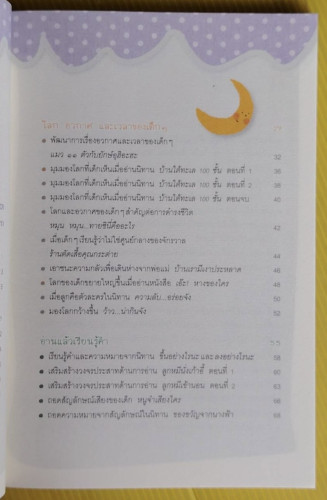 โลก อวกาศ และเวลาของเด็กๆ
พัฒนาการเรื่องอวกาศและเวลาของเด็กๆ
แมว ๑๑ ตัวกับยักษ์อุฮิอะฮะ 32
มุมมองโลกที่เด็กเห็นเมื่ออ่านนิทาน บ้านใต้ทะเล 100 ชั้น ตอนที่ 1 36
มุมมองโลกที่เด็กเห็นเมื่ออ่านนิทาน บ้านใต้ทะเล 100 ชั้น ตอนที่ 2 38
มุมมองโลกที่เด็กเห็นเมื่ออ่านนิทาน บ้านใต้ทะเล 100 ชั้น ตอนจบ 40
โลกและอวกาศของเด็กๆ สำคัญต่อการดำรงชีวิต
หมุน หมุน...ทายซินี่คืออะไร 43
เมื่อเด็กๆ เรียนรู้ว่าไม่ใช่ศูนย์กลางของจักรวาล
ร้านตัดเสื้อคุณกระต่าย 44
เอาชนะความกลัวเพื่อเดินห่างจากพ่อแม่ บ้านเรามีเงาประหลาด 46
โลกของเด็กขยายใหญ่ขึ้นเมื่ออ่านหนังสือ เอ๊ะ! หางของใคร 48
เมื่อลูกคือตัวละครในนิทาน ความลับ...อร่อยจัง 50
มองโลกกว้างขึ้น ว้าว...น่ากินจัง 52
อ่านแล้วเรียนรู้คำ 55
เรียนรู้คำและความหมายจากนิทาน ขึ้นอย่างไรนะ และ ลงอย่างไรนะ 58
เสริมสร้างวงจรประสาทด้านการอ่าน ลูกหมีนั่งเก้าอี้ ตอนที่ 1 60
เสริมสร้างวงจรประสาทด้านการอ่าน ลูกหมีเข้านอน ตอนที่ 2 63
ถอดสัญลักษณ์เสียงของเด็ก หนูจ๋าเสียงใคร 66
ถอดความหมายจากสัญลักษณ์ในนิทาน ของขวัญจากนางฟ้า 68